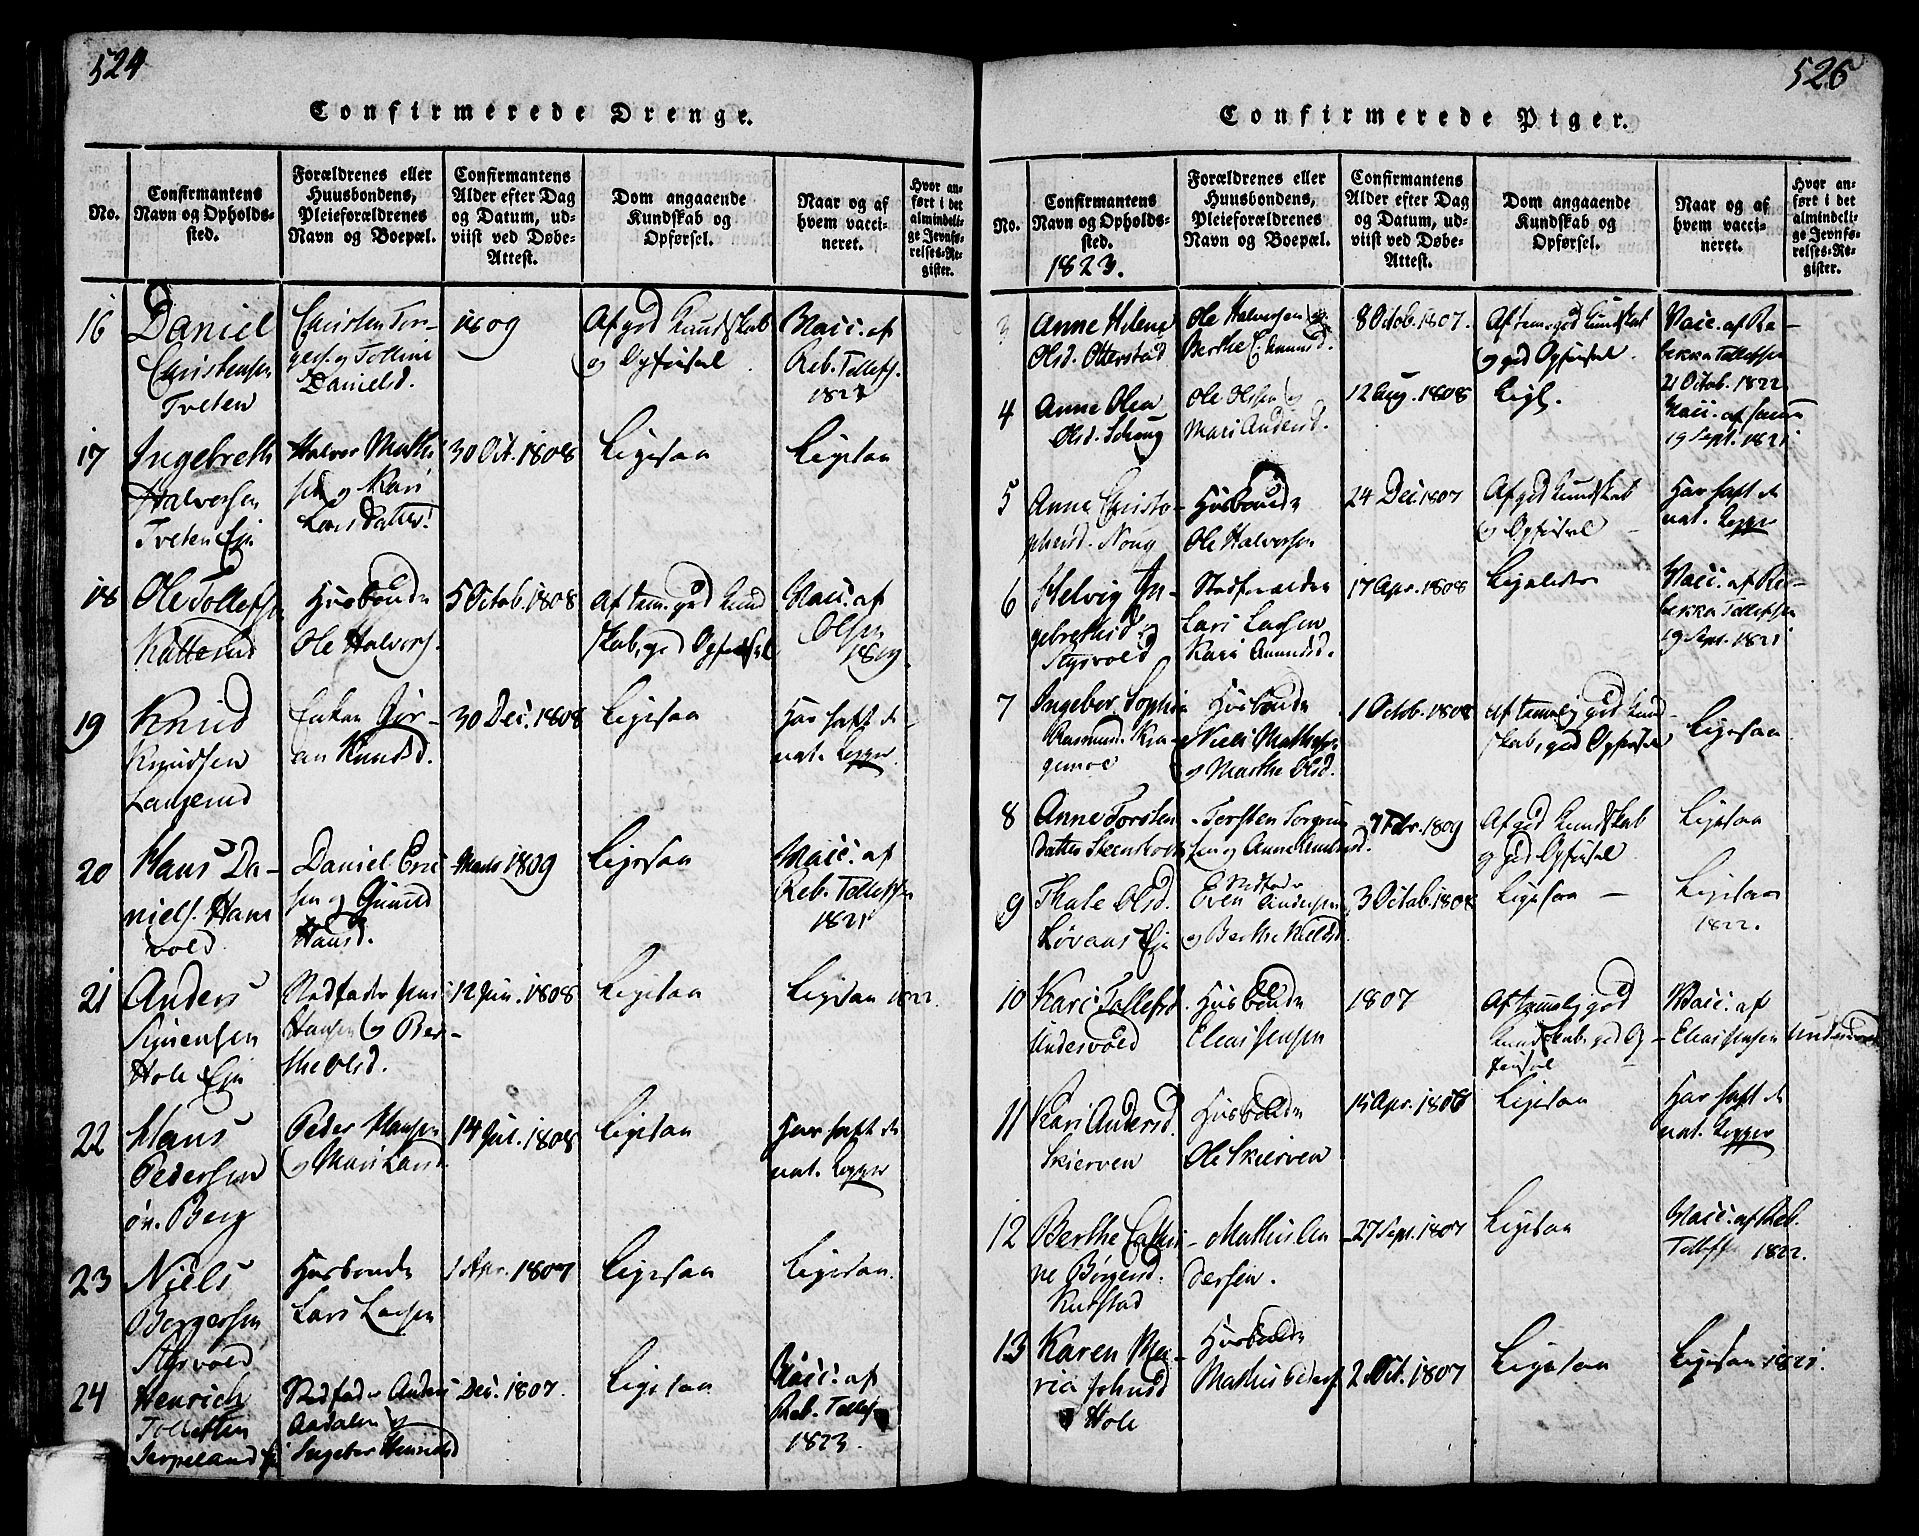 524
Confirmerede Drenge.
No.
Confirmantens
Navn og Opholds-
sted.
Forældrenes eller
Huusbondens,
Pleieforældrenes
Navn og Boepæl.
Confirmantens
Alder efter Dag
og Datum, ud-
viist ved Døbe-
Attest.
Dom angaaende
Kundskab og
Opførsel.
Naar og af
hvem vacci-
neret.
Hvor an-
ført i det
almindeli-
ge Jevnfø-
relses-Re-
gister.
16
Daniel
Christensen
Tveten
Christen Tor-
gers. og Tolline
Danielsd.
1809
Af god Kundskab
og Opførsel
Vacc. af
Reb. Tollefs.
17
Ingebreth
Halvorsen
Tveten Eje
Halvor Mathi
sen og Kari
Larsdatter
30 Oct. 1808
Ligesaa
Ligesaa
18
Ole Tollefsen
Katterud
Husbonde
Ole Halvors.
5 Octob. 1808
Af tem. god Kund
skab, god Opførsel
Vacc. af
Olsen
1819
19
Knud
Knudsen
Enken Jør-
an Knudsd.
30 Dec. 1808
Ligesaa
Har haft de
nat. Kopper
20
Hans Da-
niels. Ham
vold
Daniel Eric
sen og Gunild
Hansd.
Marts 1809
Ligesaa
Vacc. af
Reb. Tollefsen
1821
21
Anders
Sørensen
Hole Eje
Stedfader Jens
Hansen og Ber-
the Olsd.
12 Jun. 1808
Ligesaa
Ligesaa 1822.
22
Hans
Pedersen
øv. Berg
Peder Hansen
og Mari Larsd.
14 Jul. 1808
Ligesaa
Har haft de
nat. Kopper
23
Niels
Borgersen
Styrvold
Husbonde
Lars Larsen
1 Apr. 1807
Ligesaa
Ligesaa.
24
Henrich
Tollefsen
Jerpeland Eje
Stedfader Anders
Aadalen og
Ingebor Henrichsd
Dec. 1807.
Ligesaa
Vacc. af
Reb. Tollefs.
1823.
526
Confirmerede Piger.
No.
Confirmantens
Navn og Opholds-
sted.
1823.
Forældrenes eller
Huusbondens,
Pleieforældrenes
Navn og Boepæl.
Confirmantens
Alder efter Dag
og Datum, ud-
viist ved Døbe-
Attest.
Dom angaaende
Kundskab og
Opførsel.
Naar og af
hvem vacci-
neret.
Hvor an-
ført i det
almindeli-
ge Jevnfø-
relses-Re-
gister.
3
Anne Helene
Olsd. Otterstad
Ole Halvorsen og
Berthe Edmunsd.
8 Octob. 1807.
Af tem. god Kundskab
og god Opførsel.
Vacc. af Re-
bekka Tollefsen
21 Octob. 1822
4
Anne Olea
Olsd.
Ole Olsen og
Mari Andersd.
12 Aug. 1808
Ligl.
Vacc. af samme
19 Sept. 1821
5
Anne Christo-
phersd. Noug
Husbonde
Ole Halvorsen
24 Dec. 1807
Af god Kundskab
og Opførsel
Har haft de
nat. Kopper
6
Helvig In-
gebrethsd.
Styrvold
Stedforældre
Lars Larsen
Kari Amundsd.
17 Apr. 1808
Ligeledes
Vacc. af Re-
bekka Tollefsen
19 Sept. 1821
7
Ingebor Sophie
Rasmusd. Kra-
gemoe
Husbonde
Niels Mathiesen
og Marthe Olsd.
1 Octob. 1808
af temelig god Kund-
skab, god Opførsel
Ligesaa
8
Anne Torsten
datter Steenholt
Torsten Torgrim
sen og Anne
7 Febr. 1809
Af god Kundskab
og god Opførsel
Ligesaa
9
Thale Olsd.
Løvaas Eje
Stedfader
Even Andersen
og Berthe Nielsd.
3 Octob. 1808
Ligesaa
Ligesaa
1822.
10
Kari Tollefsd
Undersvold
Husbonde
Elias Jensen
1807
Af temmelig god
Kundskab, god Op-
førsel
Vacc. af
Elias Jensen Undersvold
11
Kari Andersd.
Skierven
Husbonde
Ole Skierven
15 Apr. 1808
Ligesaa
Har haft de
nat. Kopper
12
Berthe Cathri-
ne Børgersd.
Rustad
Mathis An
dersen.
27 Sept. 1807
Ligesaa
Vacc. af Reb.
Tollefs. 1822.
13
Karen Ma-
ria Johnsd
Hole
Husbonde
Mathis Peders.
2 Oct. 1807
Ligesaa
Ligesaa 1821.